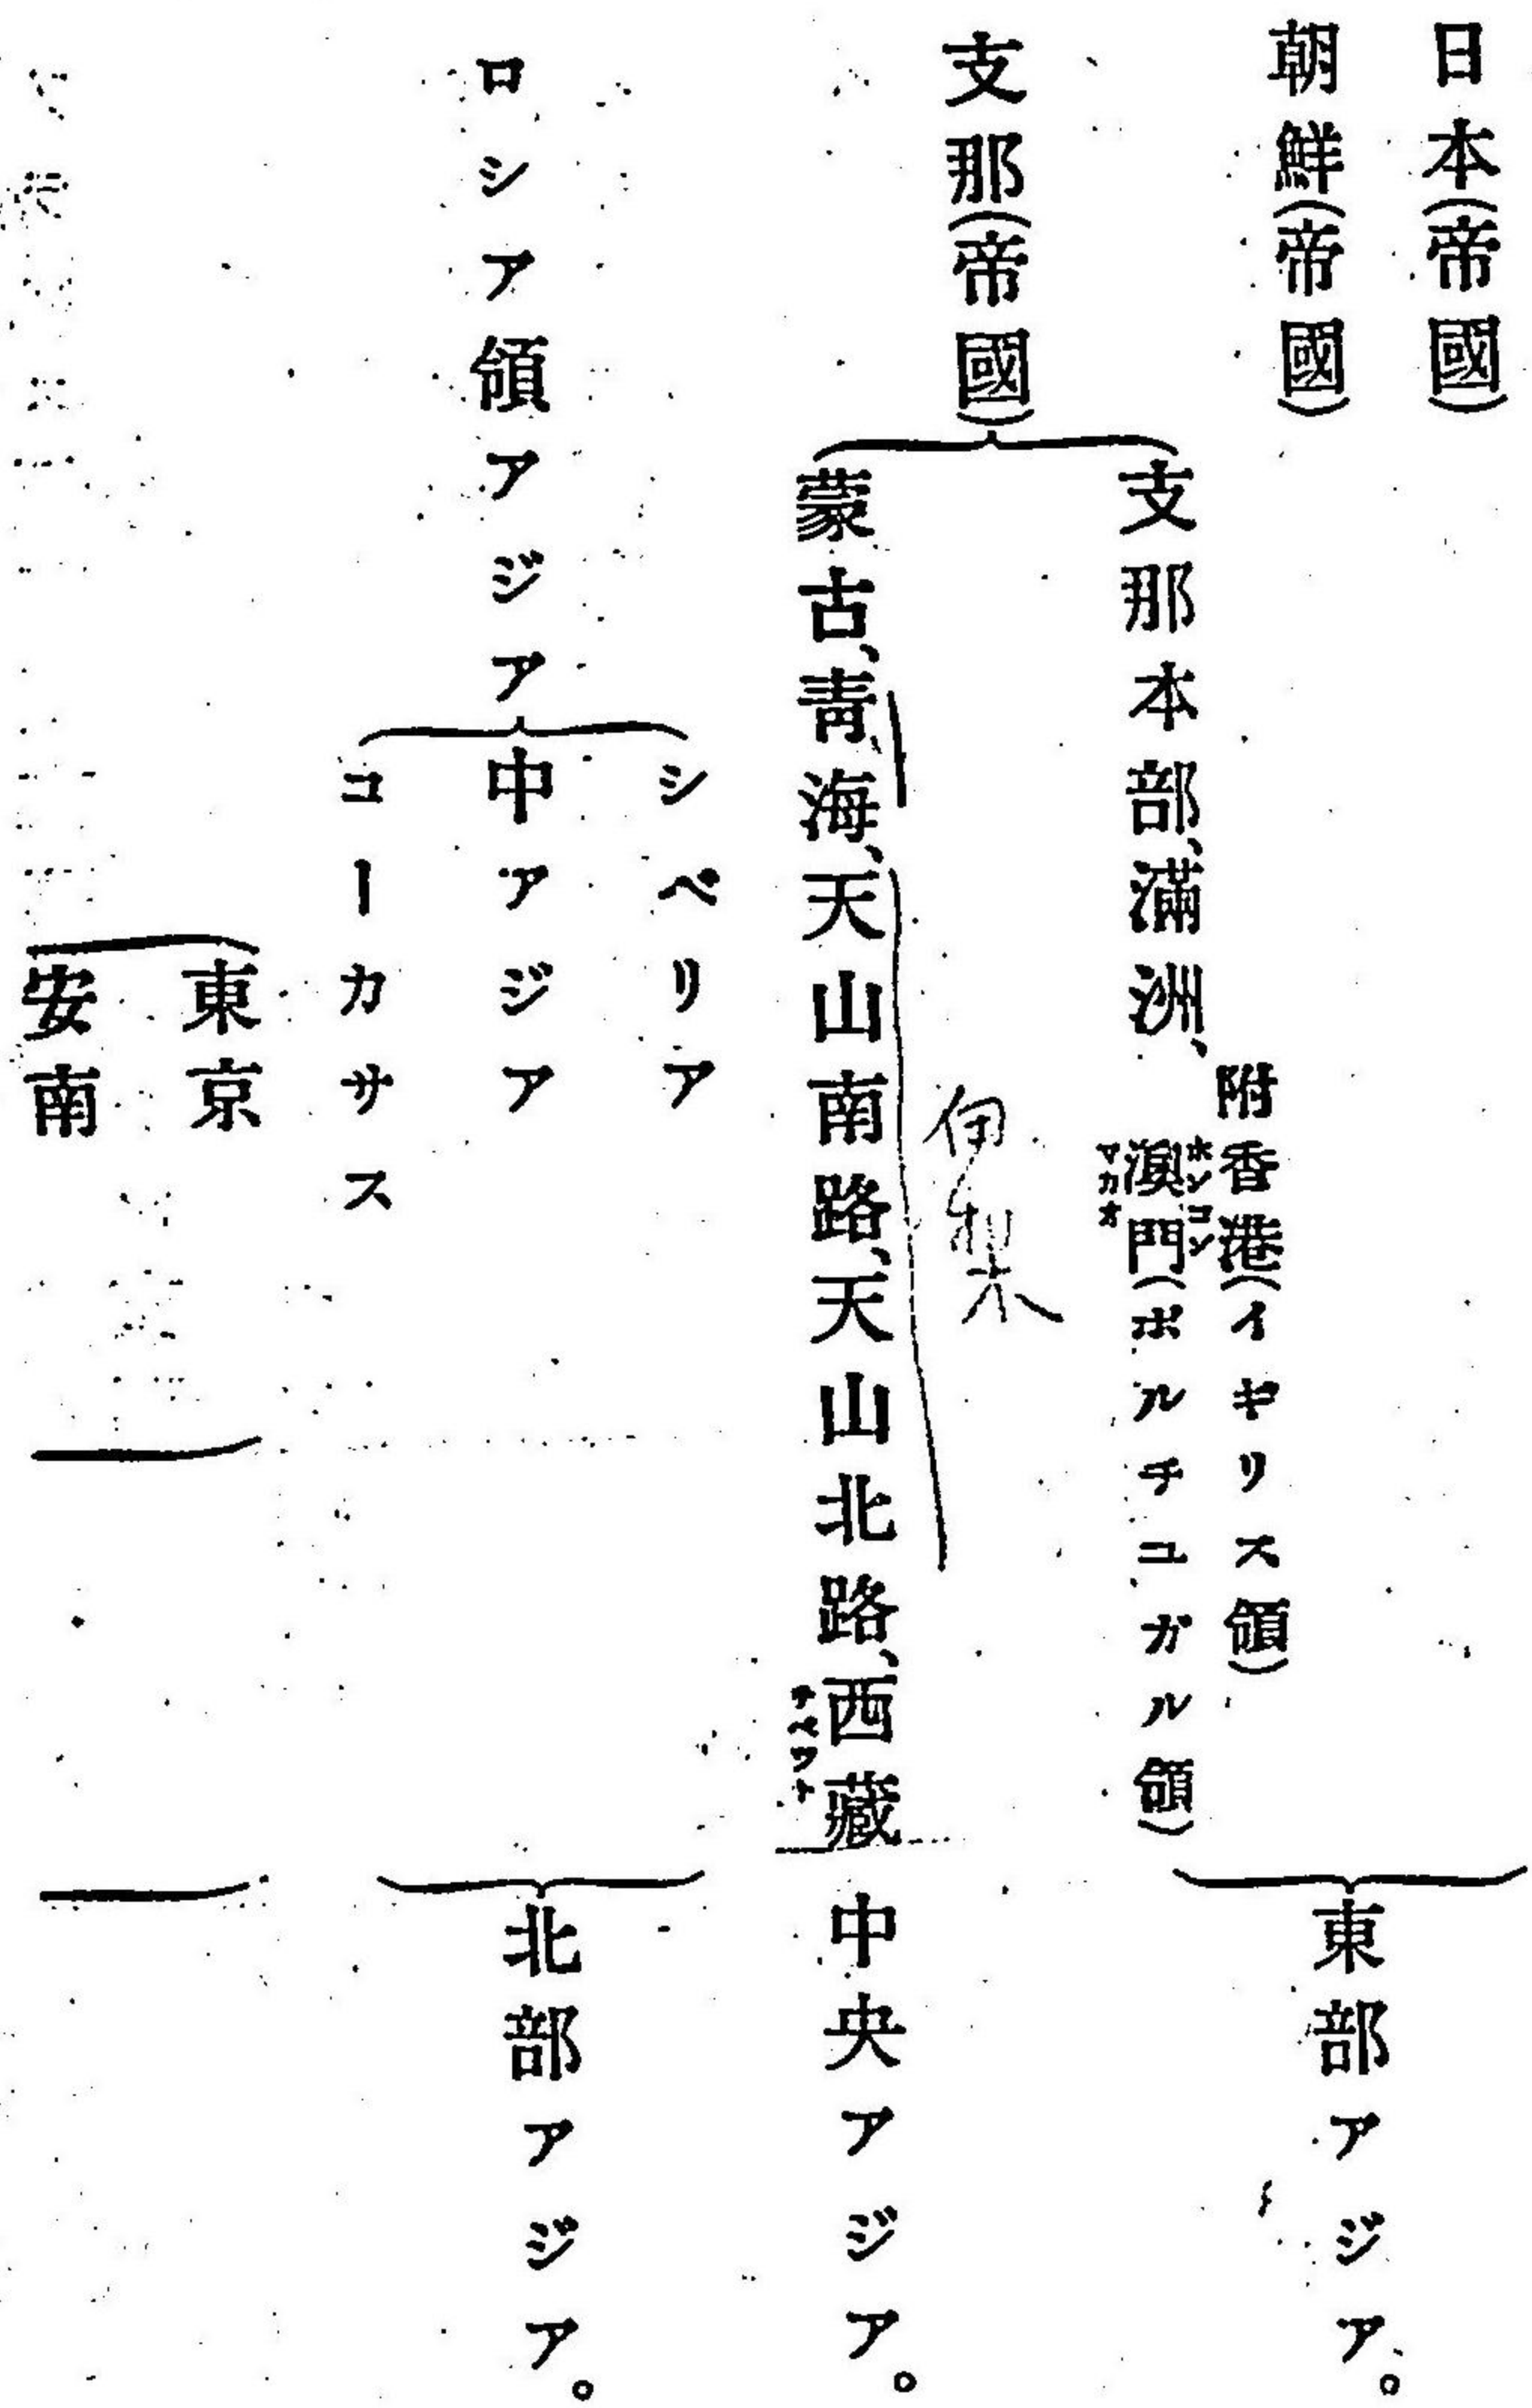 日本(帝國)
朝鮮(帝國)
東部アジア。
支那(帝國)
支那本部、滿洲、
附香港(イギリス領)
ホンコン
澳門(ポルチユガル領)
マカオ
蒙古、靑海、天山南路、天山北路、西藏
チベツト
伊犁
中央アジア。
ロシア領アジア
シベリア
中アジア
コーカサス
北部アジア。
東京
安南